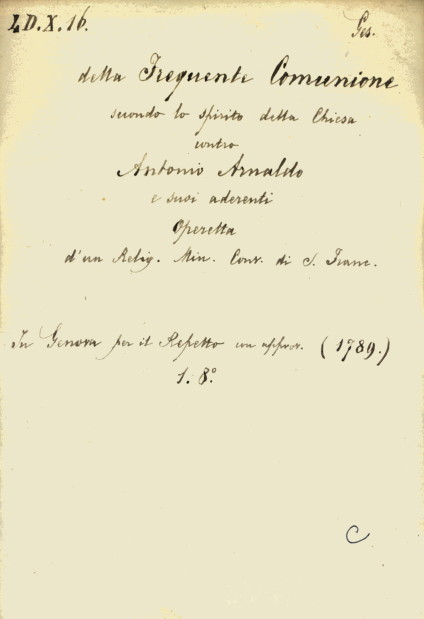 4.D.X.16.
Ges.
della Frequente Comunione
secondo lo spirito della Chiesa
contro
Antonio Arnaldo
e suoi aderenti
Operetta
d'un Relig. Min. Conv. di S. Franc.
In Genova per il Repetto con approv. (1789.)
1. 8º
C